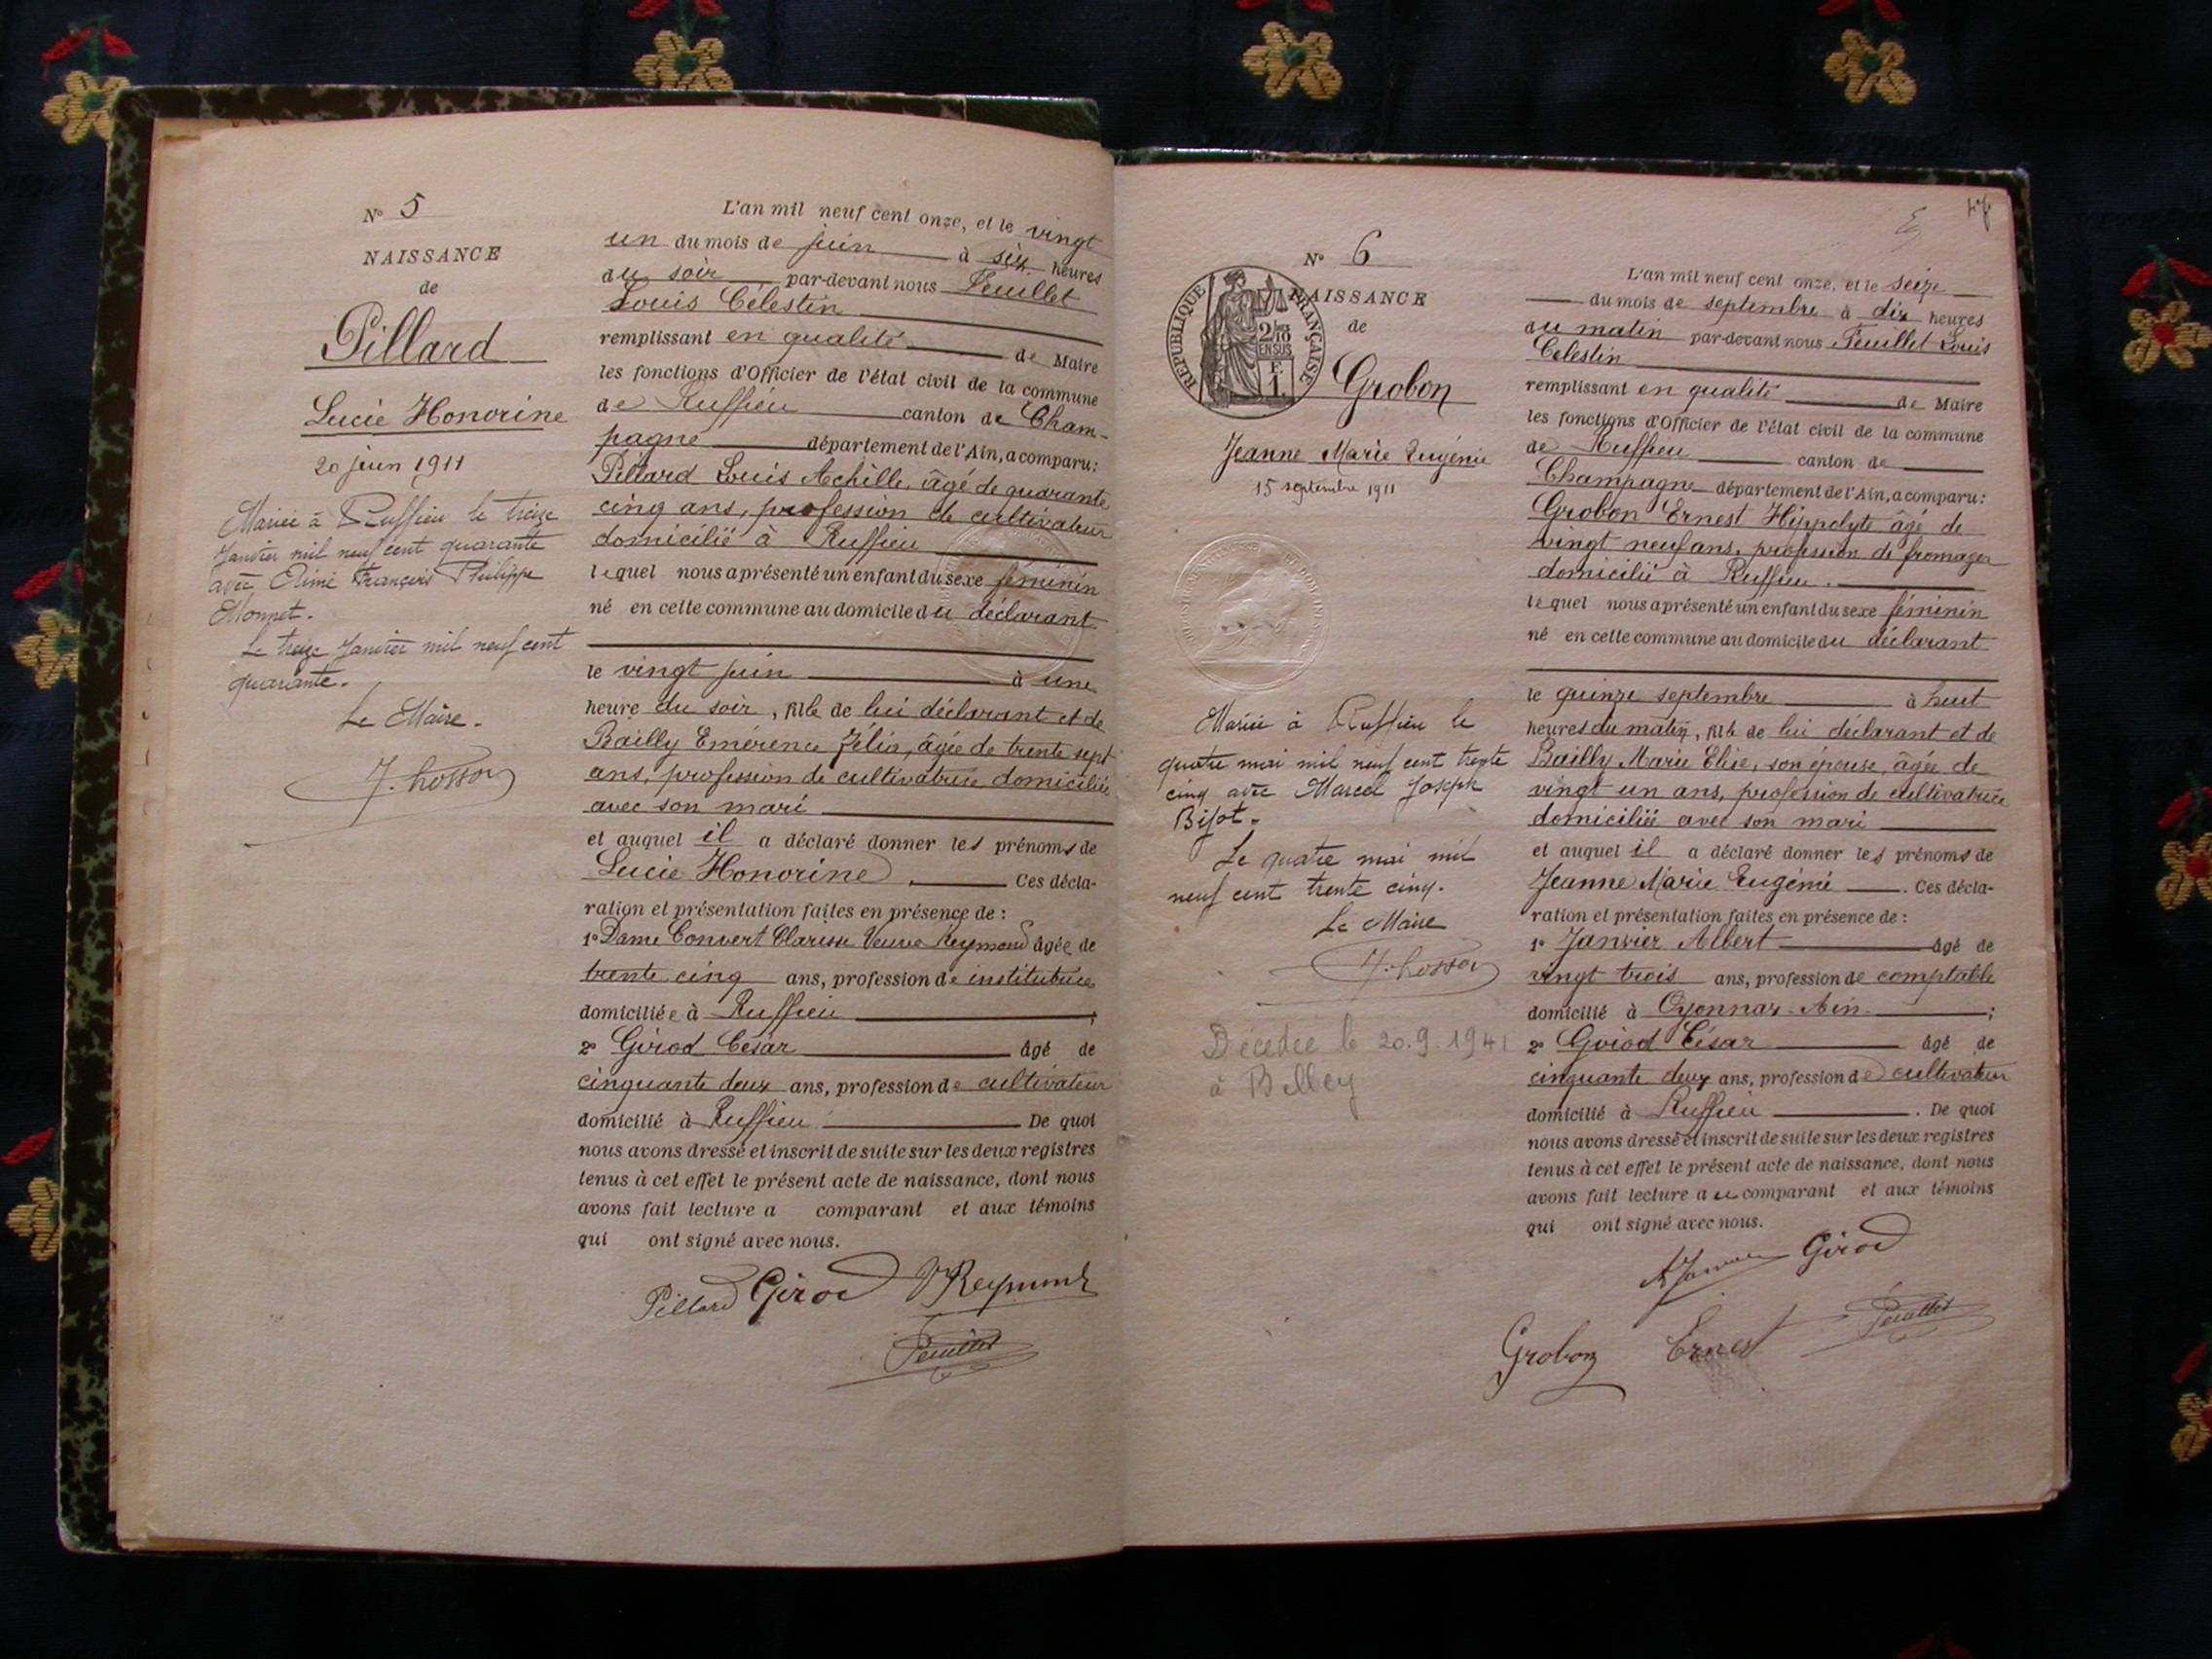 N° 5
NAISSANCE
de
Pillard
Lucie Honorine
20 juin 1911
Mariée à Ruffieu le treize
Janvier mil neuf cent quarante
avec Aimé François Philippe
Monnet.
Le treize Janvier mil neuf cent
quarante.
Le Maire.
L'an mil neuf cent onze, et le vingt
un du mois de juin à six heures
du soir par-devant nous Feuillet
Louis Célestin
remplissant en qualité de Maire
les fonctions d'Officier de l'état civil de la commune
de Ruffieu canton de Cham-
pagne département de l'Ain, a comparu:
Pillard Louis Achille, âgé de quarante
cinq ans, profession de cultivateur
domicilié à Ruffieu
lequel nous a présenté un enfant du sexe féminin
né en cette commune au domicile du déclarant
le vingt juin à une
heure du soir, fille de lui déclarant et de
Bailly Emérence Zélia, âgée de trente sept
ans, profession de cultivatrice domiciliée
avec son mari
et auquel il a déclaré donner les prénoms de
Lucie Honorine. Ces décla-
ration et présentation faites en présence de :
1° Dame Convert Clarisse Veuve Reymond âgée de
trente cinq ans, profession de institutrice
domiciliée à Ruffieu ;
2° Girod César âgé de
cinquante deux ans, profession de cultivateur
domicilié à Ruffieu De quoi
nous avons dressé et inscrit de suite sur les deux registres
tenus à cet effet le présent acte de naissance, dont nous
avons fait lecture a comparant et aux témoins
qui ont signé avec nous.
Pillard Girod Vve Reymond
Feuillet
N° 6
RÉPUBLIQUE FRANÇAISE
2/10
EN SUS
F.
1.
NAISSANCE
de
Grobon
Jeanne Marie Eugénie
15 septembre 1911
Mariée à Ruffieu le
quatre mai mil neuf cent trente
cinq avec Marcel Joseph
Bijot.
Le quatre mai mil
neuf cent trente cinq.
Le Maire
Décédée le 20.9.1941
à Belley
L'an mil neuf cent onze, et le seize
du mois de septembre à dix heures
du matin par-devant nous Feuillet Louis
Célestin
remplissant en qualité de Maire
les fonctions d'Officier de l'état civil de la commune
de Ruffieu canton de
Champagne département de l'Ain, a comparu:
Grobon Ernest Hippolyte âgé de
vingt neuf ans, profession de fromager
domicilié à Ruffieu.
lequel nous a présenté un enfant du sexe féminin
né en cette commune au domicile du déclarant
le quinze septembre à huit
heures du matin, fille de lui déclarant et de
Bailly Marie Elise, son épouse, âgée de
vingt un ans, profession de cultivatrice
domiciliée avec son mari
et auquel il a déclaré donner les prénoms de
Jeanne Marie Eugénie . Ces décla-
ration et présentation faites en présence de :
1° Janvier Albert âgé de
vingt trois ans, profession de comptable
domicilié à Oyonnax Ain ;
2° Girod César âgé de
cinquante deux ans, profession de cultivateur
domicilié à Ruffieu . De quoi
nous avons dressé et inscrit de suite sur les deux registres
tenus à cet effet le présent acte de naissance, dont nous
avons fait lecture au comparant et aux témoins
qui ont signé avec nous.
A Janvier Girod
Grobon Ernest Feuillet